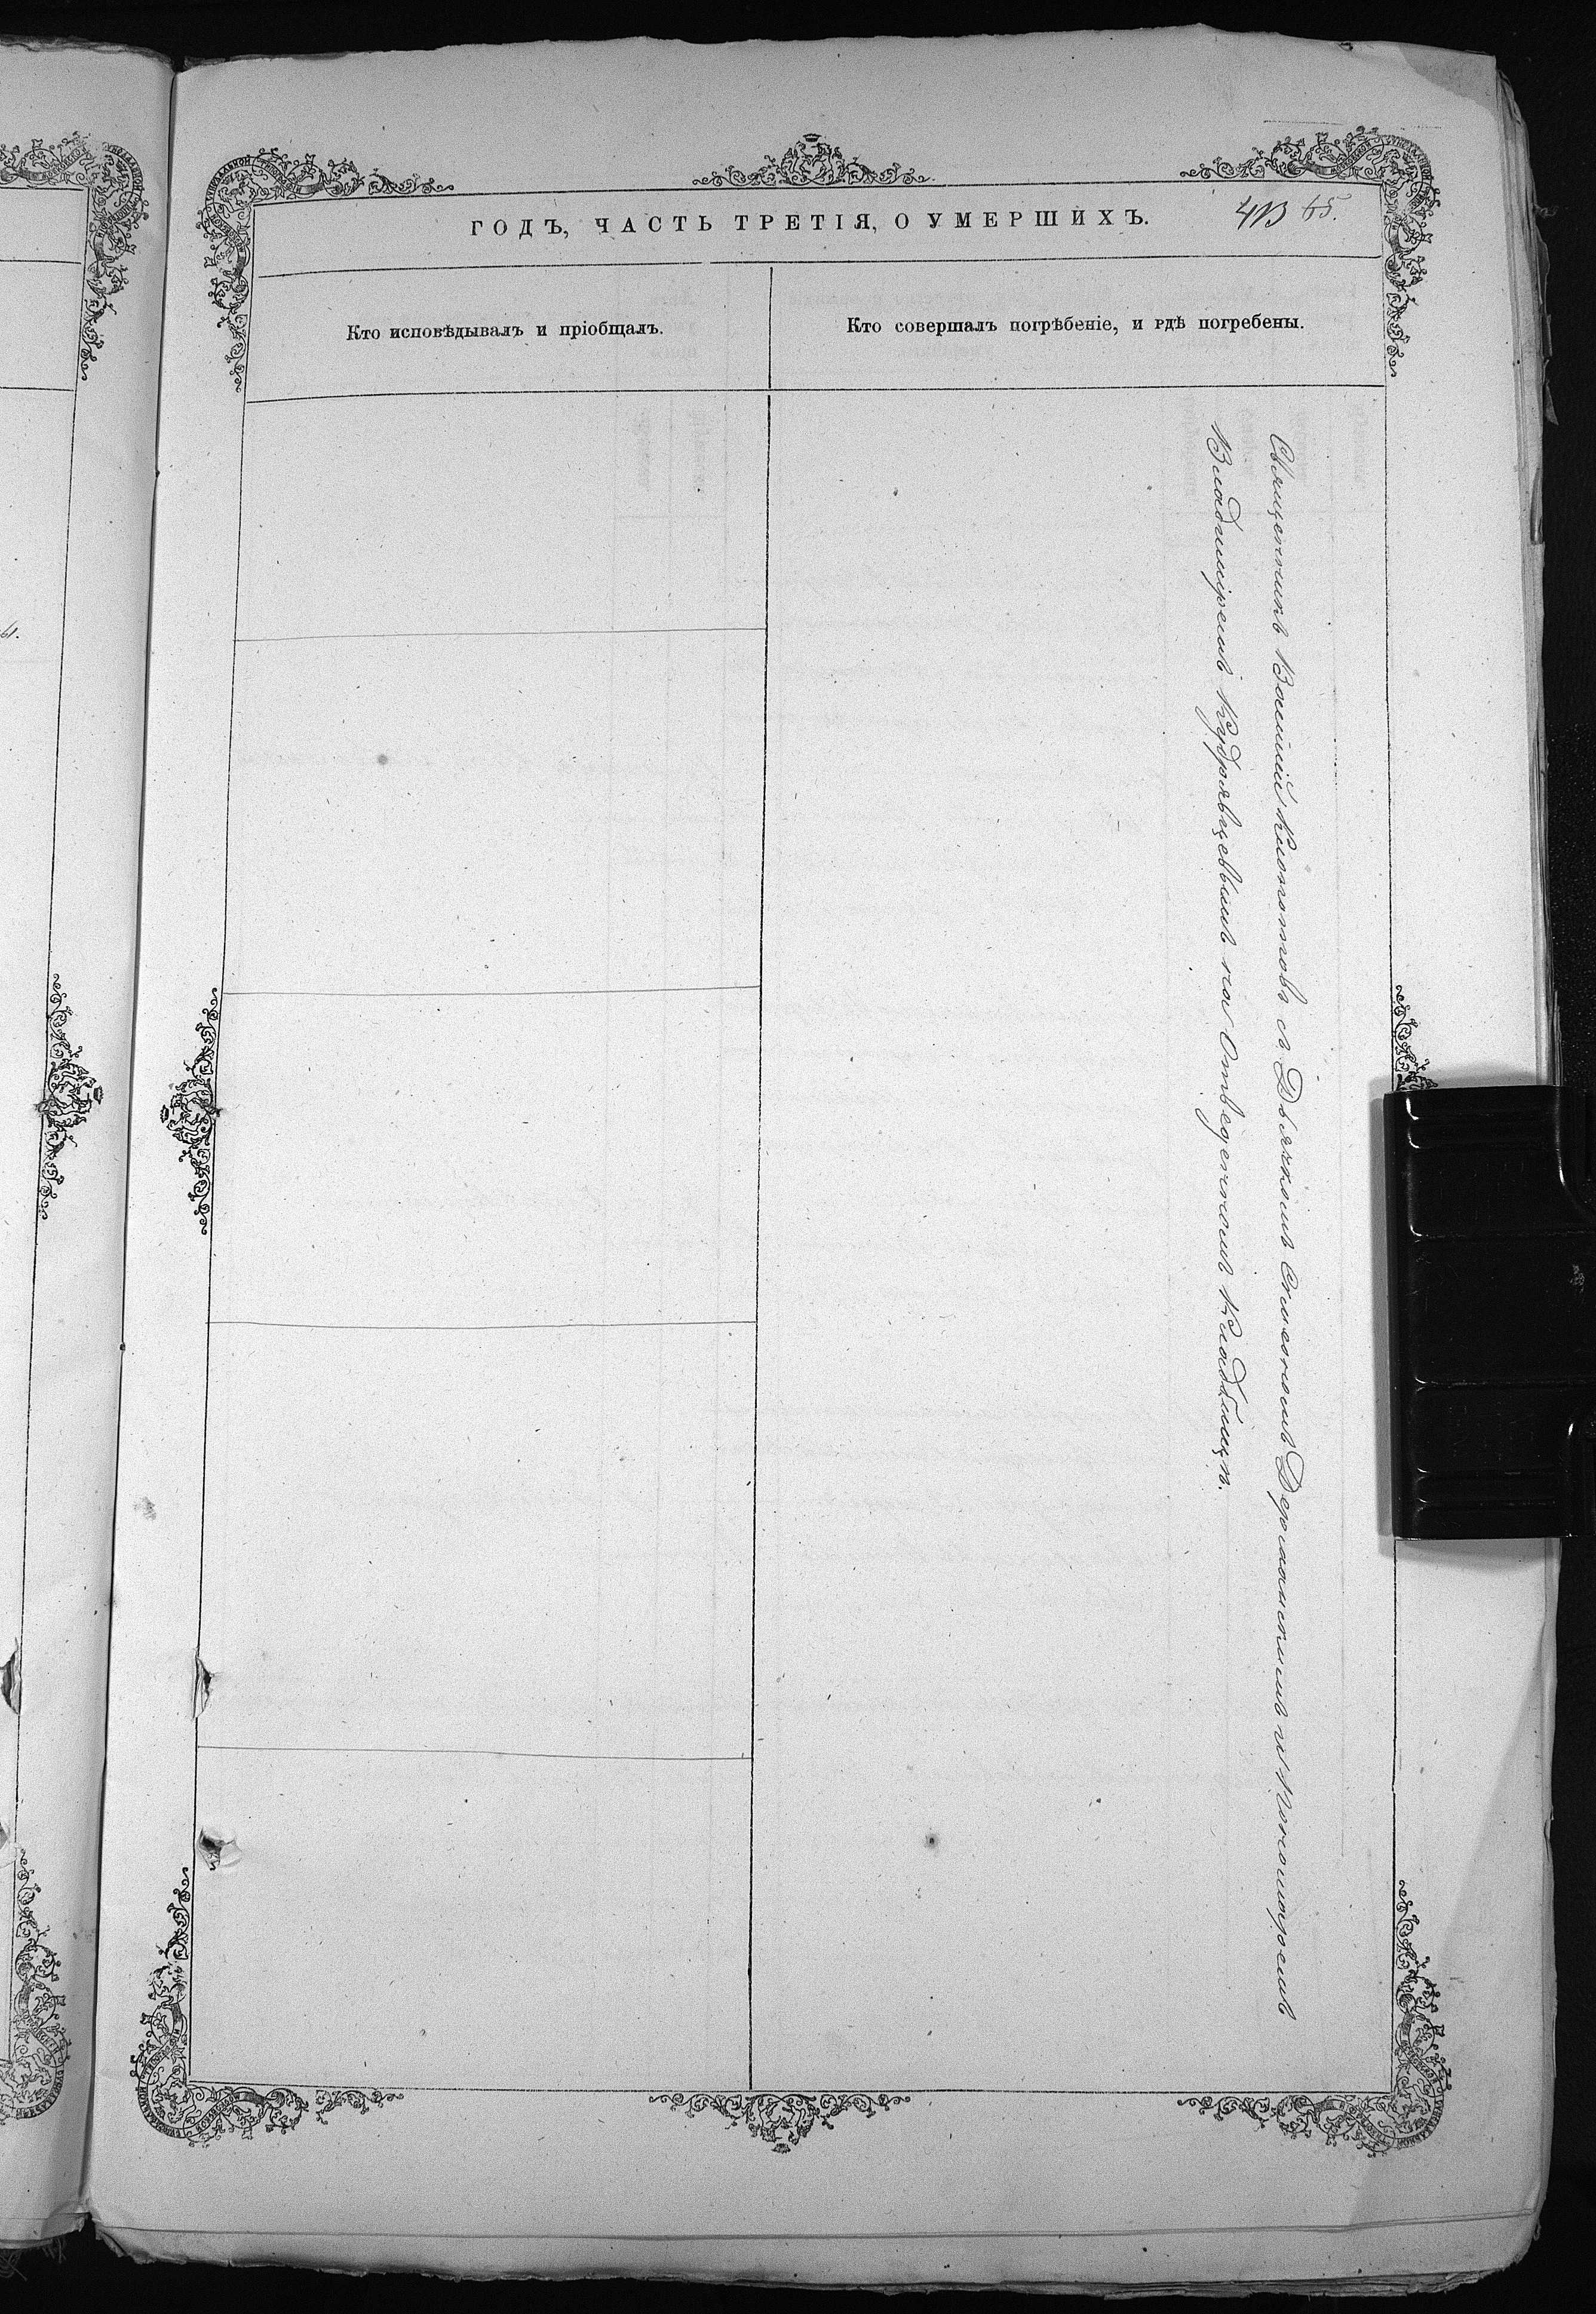 ГОДЪ, ЧАСТЬ ТРЕТІЯ, О УМЕРШИХЪ.
65.
Кто исповѣдывалъ и пріобщалъ.
Кто совершалъ погрѣбеніе, и гдѣ погребены.
Священникъ Василій съ Дьячкомъ Симеономъ Державинымъ и Пономаремъ
Владиміремъ Кудрявцевымъ на Отведенномъ Кладбищѣ.